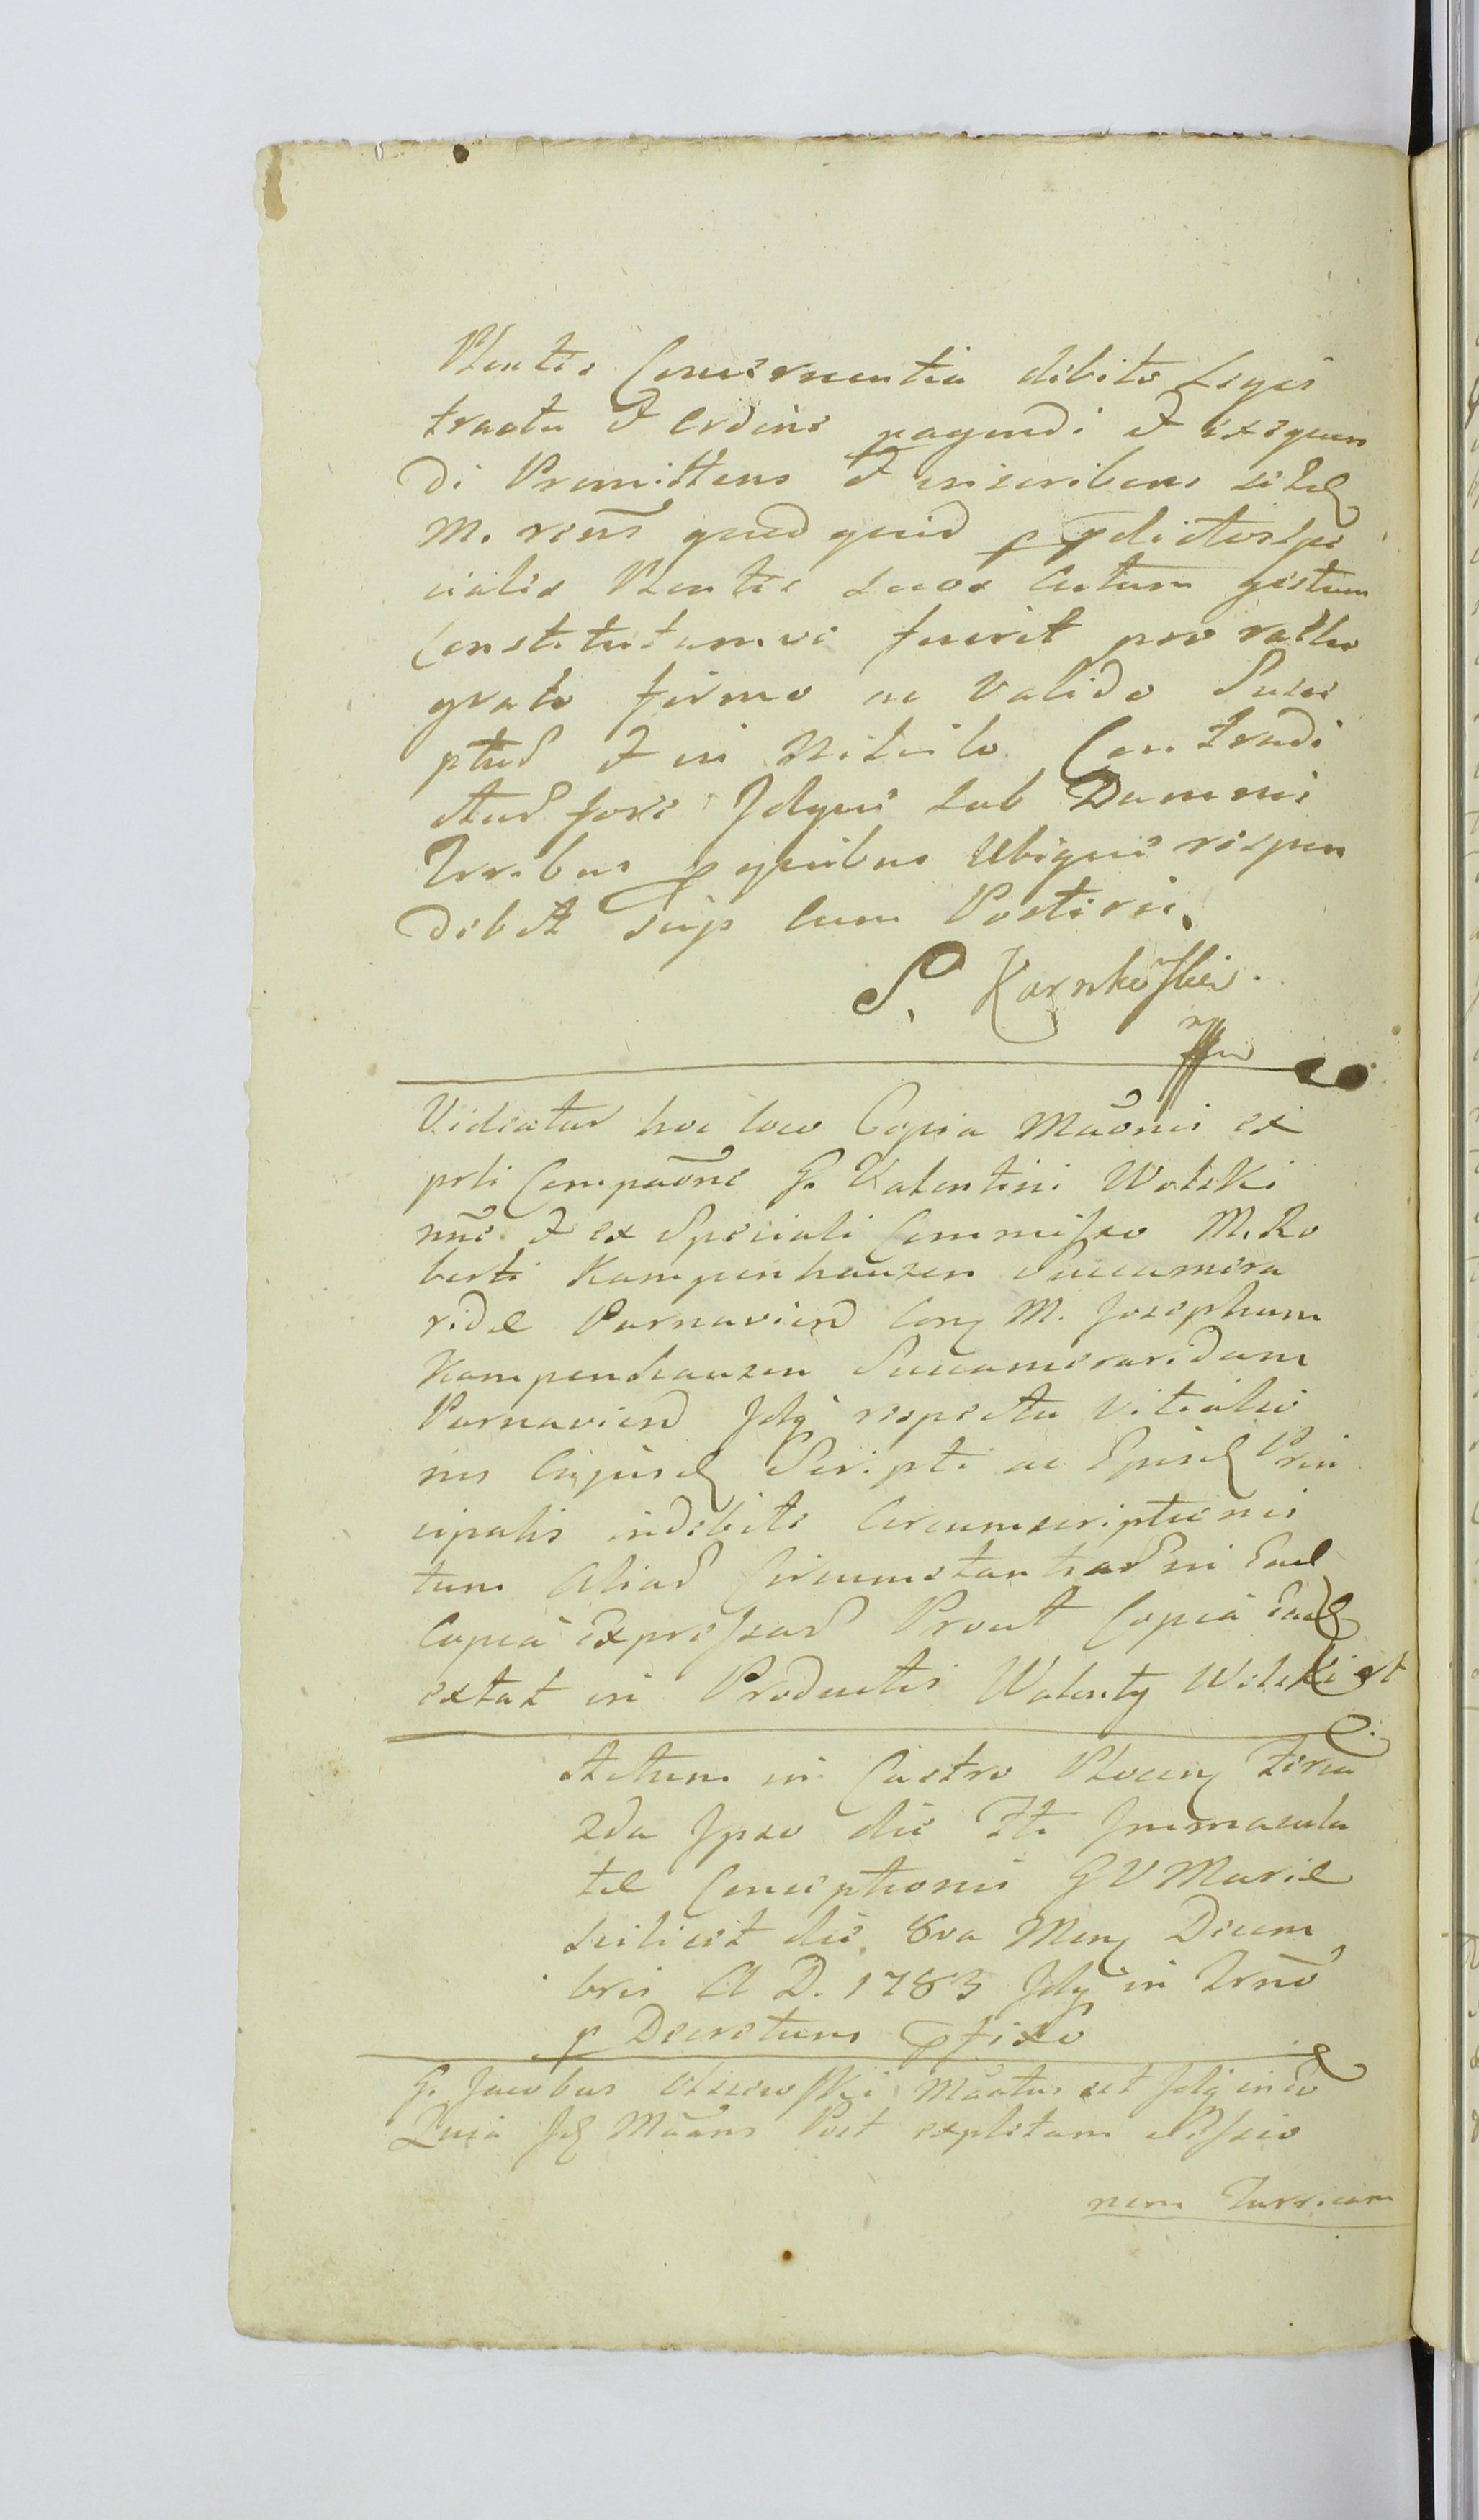 Plentis Concernentia debito Legis
tractu et ordine pagendi et exequen
di Promittens et inscribens se Idem
M. recns quod quid p pdictos spe
ciales Plentes suos Actum gestum
Constitutumve fuerit pro ratho
grato firmo ac valido Susce
pturus et in Nihilo Contradi
cturus fore Idque sub Damnis
Terribus p quibus Ubique respon
debit seip cum Posteris.
S. Karnkowski
mpp
Videatur hoc loco Copia Maonis ex
prli Compaone G. Valentini Wolski
nne et ex Speciali Commisso M. Ro
berti Kampenhauzen Succamera
ridae Parnavien Conq M. Josephum
Kampenhauzen Succameraridam
Parnavien Idq respectu vitialio
nis Cujusd Scripti ac Ejusd Prin
cipalis indebite Circumscriptionis
tum Aliar Circumstantiar in Ead
Copia expressar Prout Copia Ead
extat in Productis Walenty Wolski st
Actum in Castro Plocen Feria
2da Ipso die Fti Immacula
tae Conceptionis GV Mariae
scilicet die 8va Mens Decem
bris A D. 1783 Idq in Trno
p Decretum pfixo
G. Jacobus Olszewski Maatus est Idq in eo
Quia Id Maans Post expletam Sessio
nem Turricam